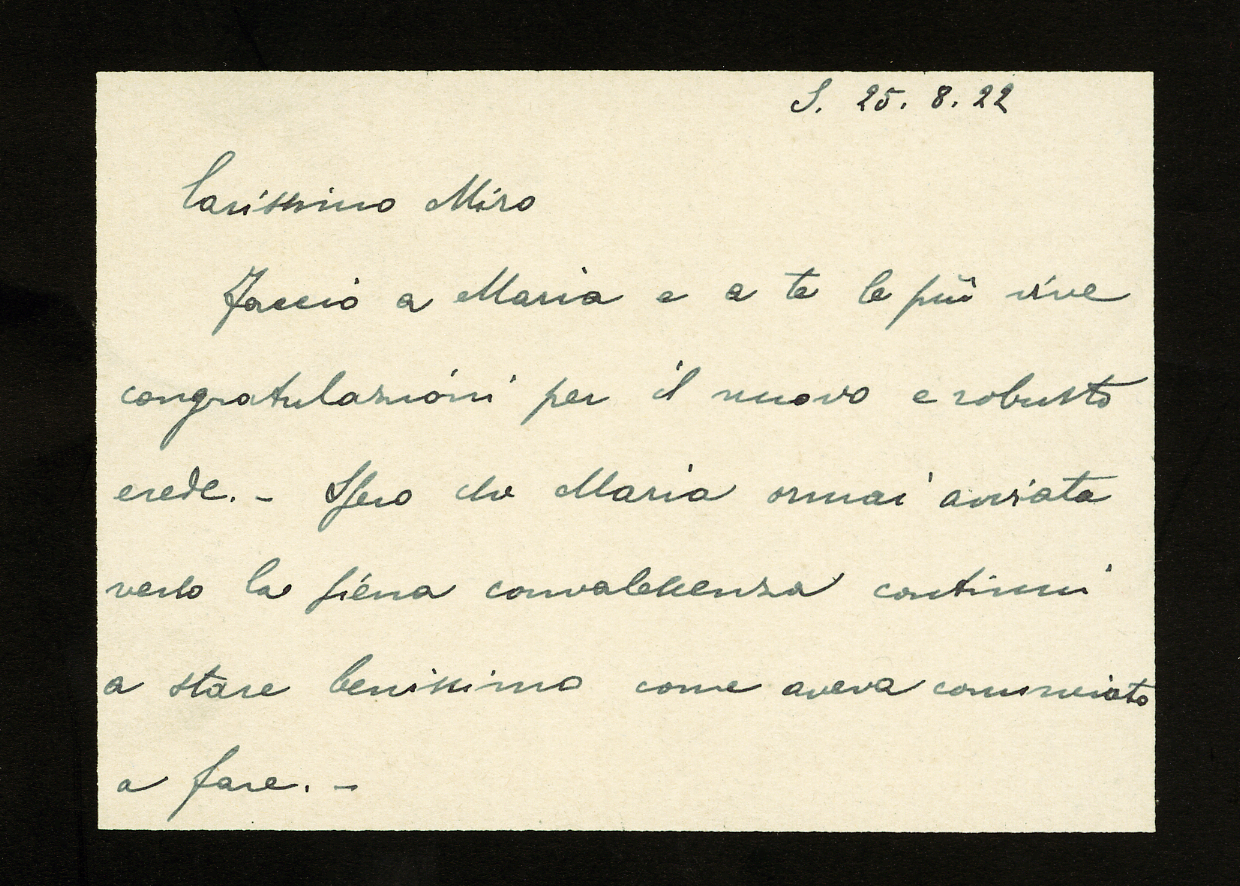 S. 25. 8. 22
Carissimo Miro
Faccio a Maria e a te le più vive
congratulazioni per il nuovo e robusto
erede. - Spero che Maria ormai avviata
verso la piena convalescenza continui
a stare benissimo come aveva cominciato
a fare. -